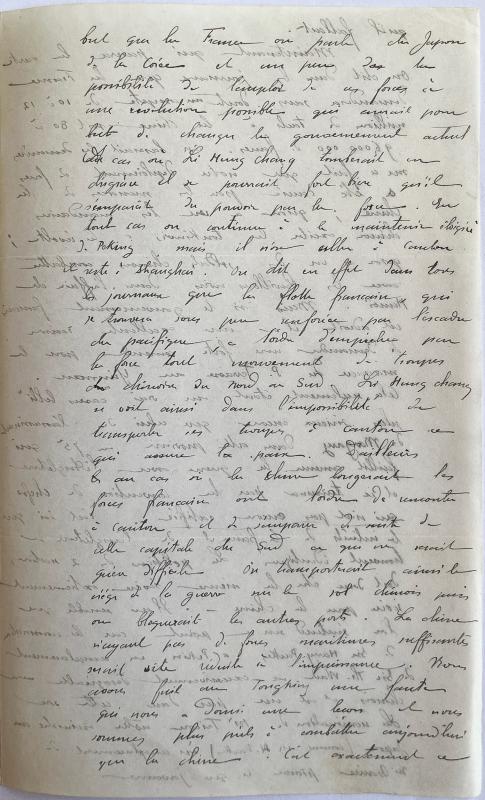 but que la France on parle du Japon
de la Corée et un peu
possibilité de l'emploi de ces forces à
une révolution possible qui aurait pour
but de changer le gouvernement actuel
cas où Li Hung chang tomberait en
disgrace et se pourrait fort bien qu'il
s'emparât du pouvoir par la force. En
tout cas on continue à le maintenir éloigné
de Peking mais il n'ose aller à Canton
et reste à Shanghai. On dit en effet dans tous
les journaux que la flotte française qui
se trouvera sous peu renforcée par l'escadre
du pacifique a l'ordre d'empêcher par
la force tout mouvement de troupes
chinoises du Nord au Sud. Li Hung chang
se voit ainsi dans l'impossibilité de
transporter ses troupes à Canton ce
qui assure la paix. D'ailleurs
au cas où la Chine bougerait les
forces françaises ont l'ordre de remonter
à Canton et de s'emparer de suite de
cette capitale du Sud ce qui ne serait
guère difficile. On transporterait ainsi le
siège de la guerre sur le sol chinois puis
on bloquerait les autres ports. La chine
n'ayant pas de forces maritimes suffisantes
serait vite réduite à l'impuissance. Nous
avons fait au Tongkin une faute
qui nous a donné une leçon et nous
sommes plus prêts à combattre aujourd'hui
que la chine. C'est exactement ce